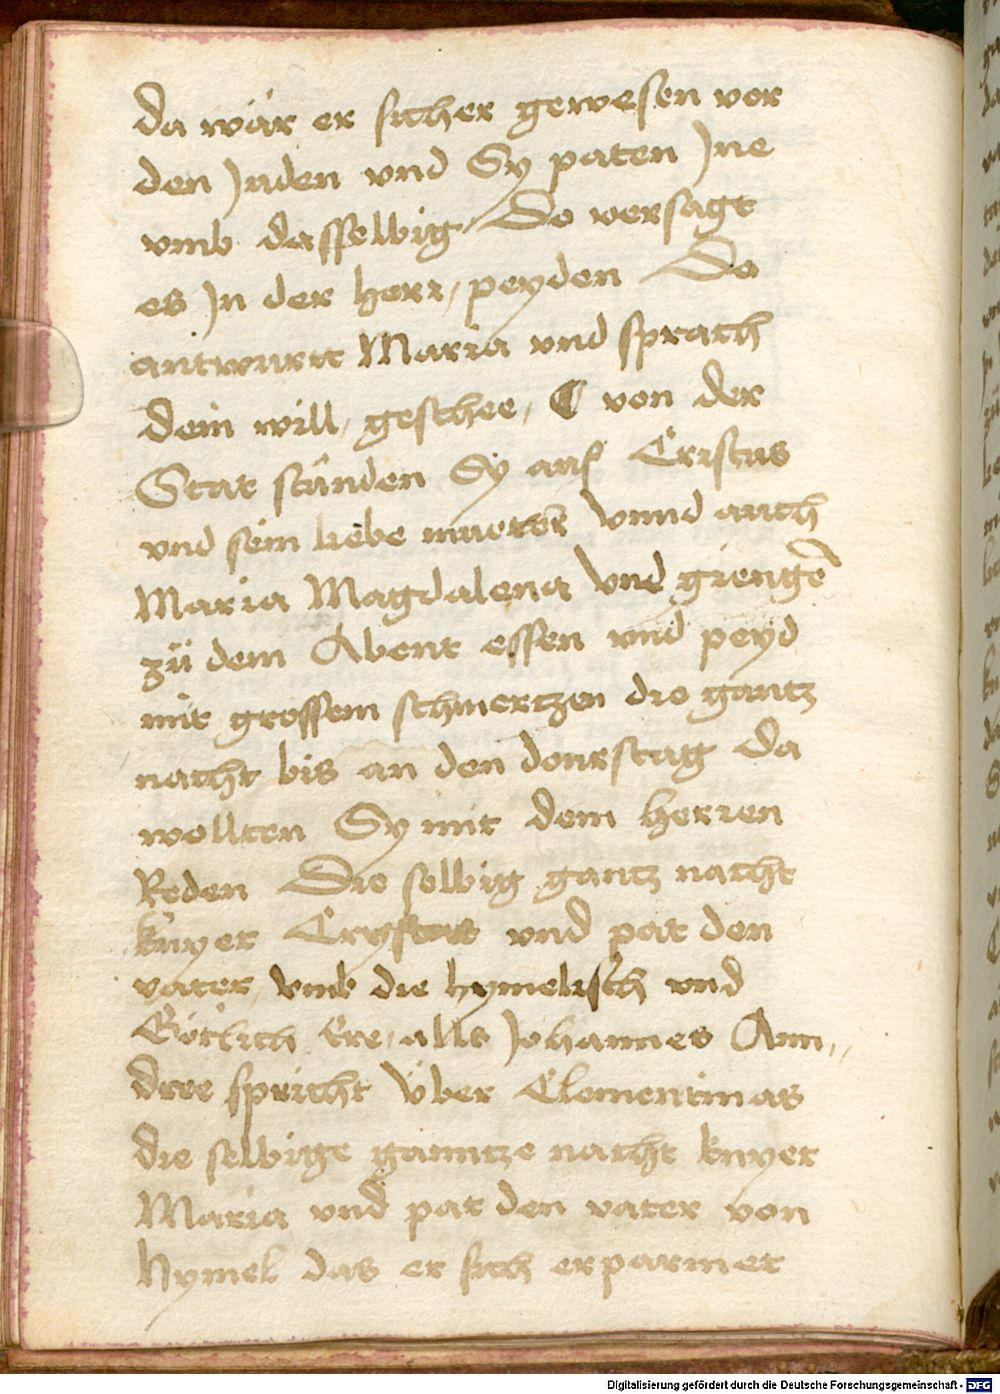 da wär er sicher gewesen vor
den Juden vnd Sy paten Jne
vmb dasselbig / Do versagt
es Jn der herr / peyden Da
antwurtt Maria vnd sprach
dein will / geschee / ¶ von der
Stat stûnden Sy auf Cristus
vnd sein liebe muoter Vnnd auch
Maria Magdalena Vnd giengē
zü dem Abent essen vnd peyd
mit grossem schmertzen die gantz
nacht bis an den donrstag Da
wollten Sy mit dem herren
Reden Die selbig gantz nacht
knyet vnd pat den
vater / vmb die hymelisch vnd
Götlich Ere / alls Johannes Ann„
dree spricht Über Clementinas
die selbige ganntze nacht knyet
Maria vnd pat den vater von
hymel das er sich erparmet
Digitalisierung gefördert durch die Deutsche Forschungsgemeinschaft - DFG